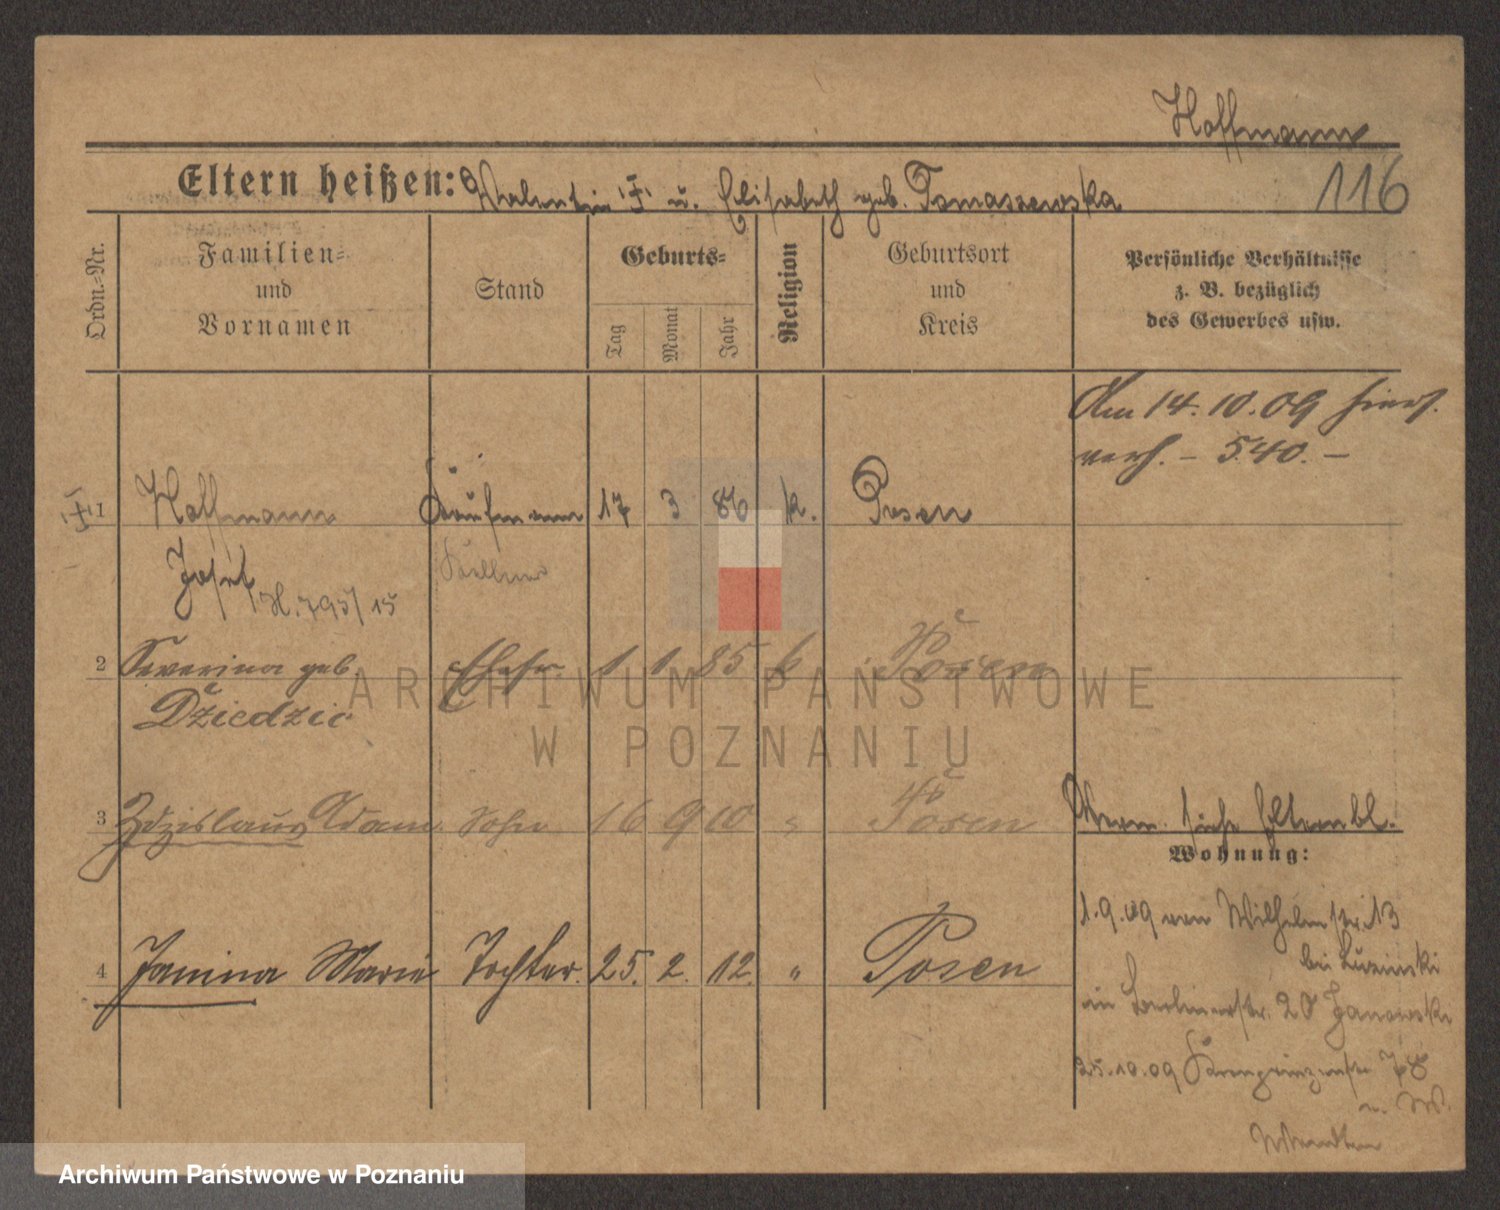 Hoffmann
Eltern heißen: Valentin u. Elisabeth geb. Tomaszewska 116
Ordn.-Nr.
Familien-
und
Vornamen
Stand
Geburts-
Tag
Monat
Jahr
Religion
Geburtsort
und
Kreis
Persönliche Verhältnisse
z. B. bezüglich
des Gewerbes usw.
Am 14. 10. 09
verh. – 540. –
1 Hoffmann Kaufmann 17 3 86 k. Posen
Josef H. 795/15
Kellner
2 Severina geb. Ehefr. 1 1 85 k Posen
Dziedzic
3 Zdzislaus Adam Sohn 16 9 10 " Posen
Verm. siehe Elternbl.
Wohnung:
1.9.09 von Wilhelmstr. 13
bei
4 Janina Marie Tochter. 25. 2. 12. " Posen
in Berlinerstr. 20 Janowski
25.10.09 Kronprinzenstr 78
ARCHIWUM PAŃSTWOWE
W POZNANIU
Archiwum Państwowe w Poznaniu